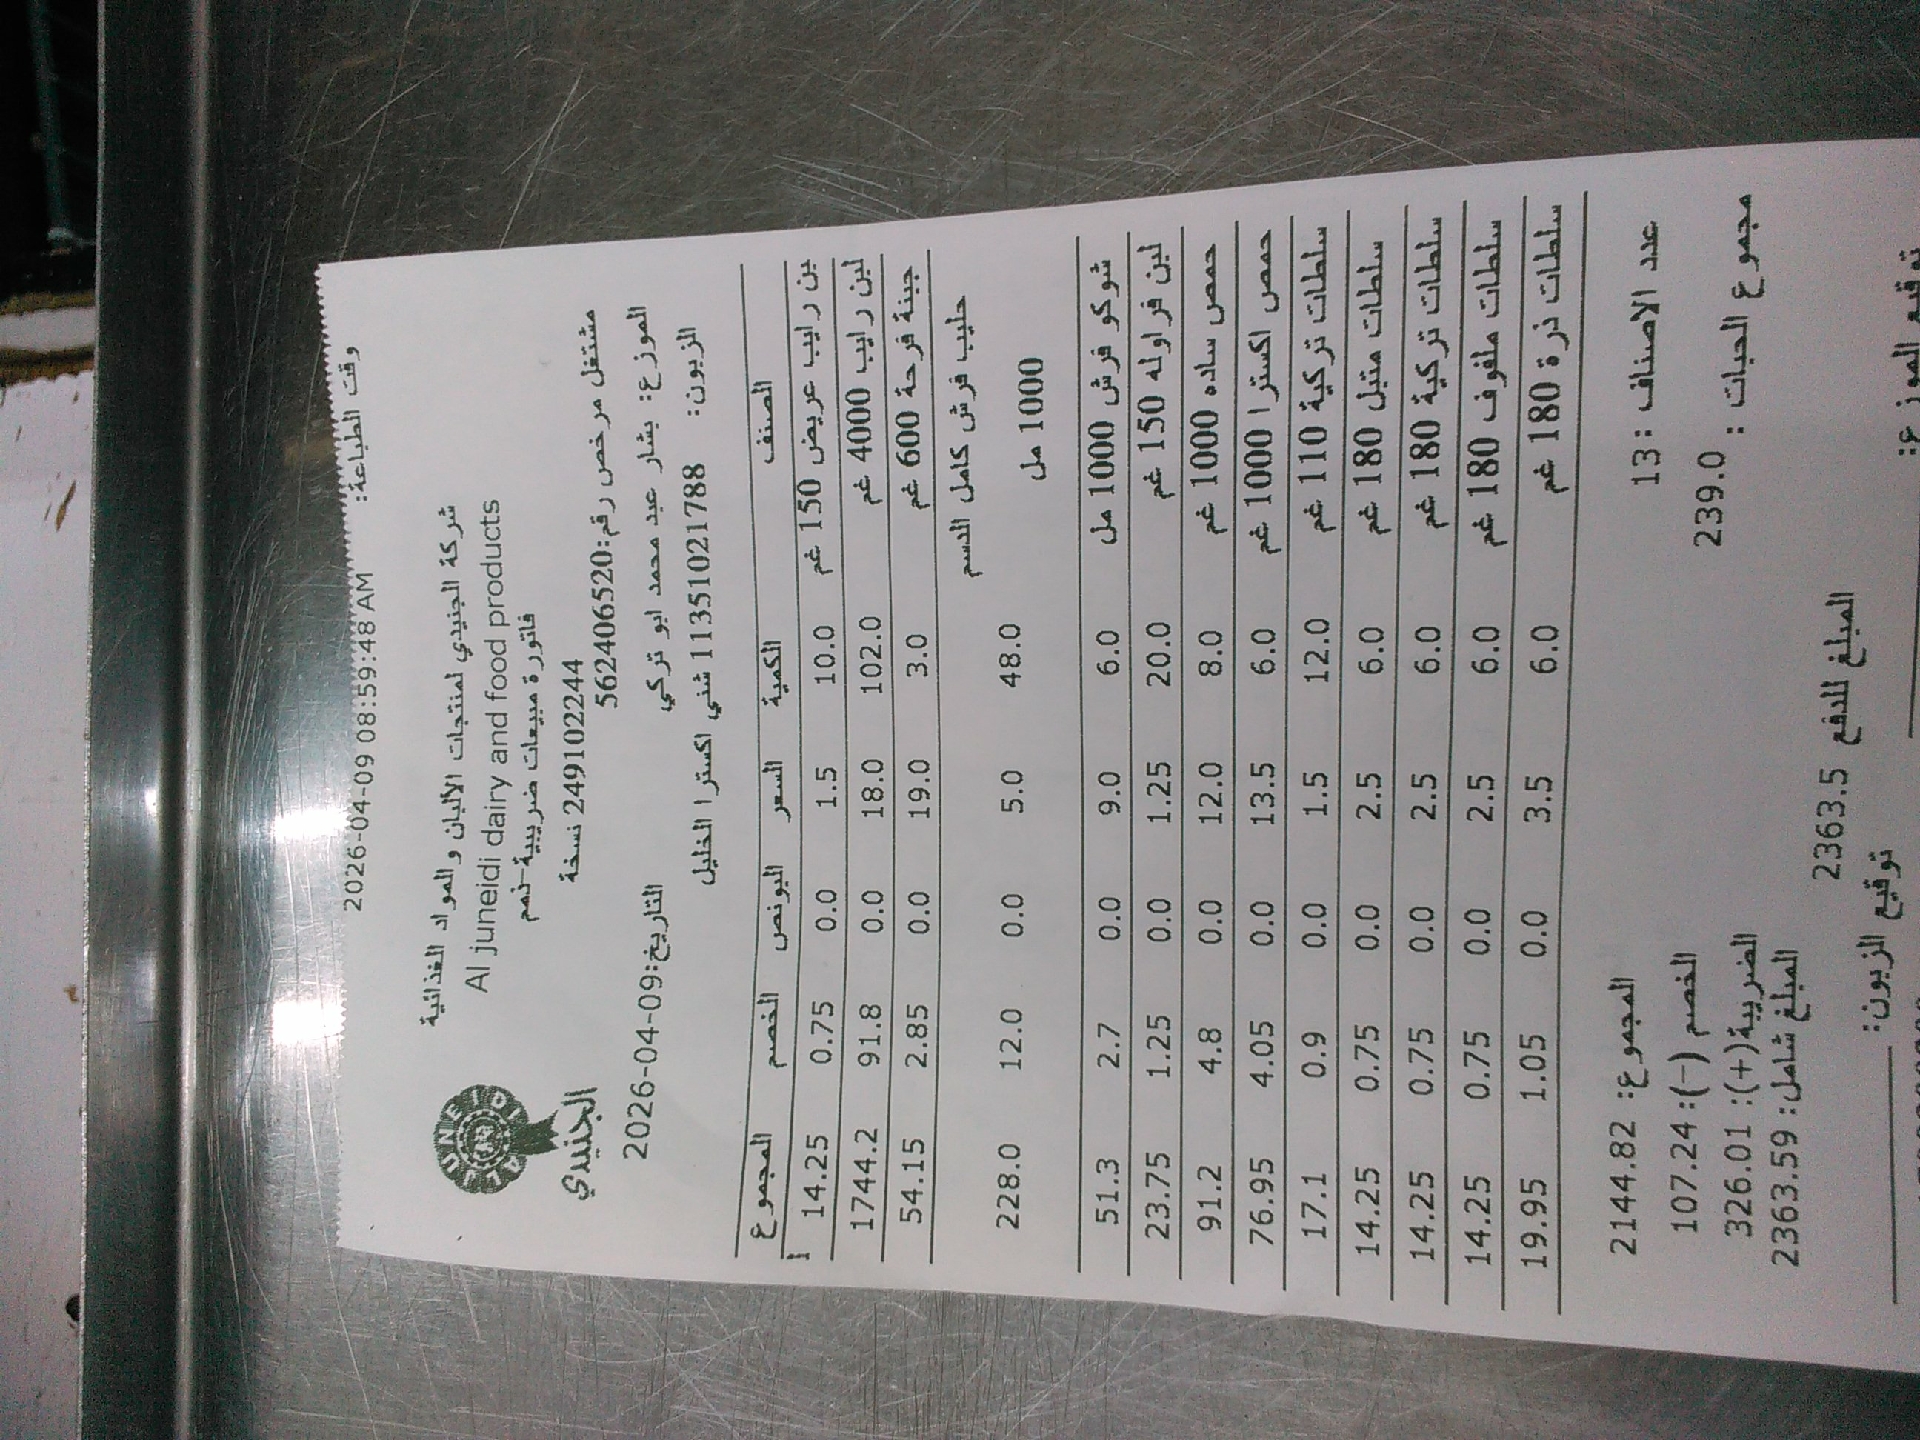 وقت الطباعة: 2026-04-09 08:59:48 AM
شركة الجنيدي لمنتجات الألبان والمواد الغذائية
Al juneidi dairy and food products
فاتورة مبيعات ضريبية-نمم
AL JUNEIDI
الجنيدي
249102244 نسخة
مشتغل مرخص رقم:562406520
الموزع: بشار عبد محمد ابو تركي
التاريخ:2026-04-09
الزبون: 11351021788 شني اكسترا الخليل
الصنف الكمية السعر البونص الخصم المجموع
بن رايب عريض 150 غم 10.0 1.5 0.0 0.75 14.25
لبن رايب 4000 غم 102.0 18.0 0.0 91.8 1744.2
جبنة فرحة 600 غم 3.0 19.0 0.0 2.85 54.15
حليب فرش كامل الدسم
1000 مل 48.0 5.0 0.0 12.0 228.0
شوكو فرش 1000 مل 6.0 9.0 0.0 2.7 51.3
لبن فراوله 150 غم 20.0 1.25 0.0 1.25 23.75
حمص ساده 1000 غم 8.0 12.0 0.0 4.8 91.2
حمص اكسترا 1000 غم 6.0 13.5 0.0 4.05 76.95
سلطات تركية 110 غم 12.0 1.5 0.0 0.9 17.1
سلطات متبل 180 غم 6.0 2.5 0.0 0.75 14.25
سلطات تركية 180 غم 6.0 2.5 0.0 0.75 14.25
سلطات ملفوف 180 غم 6.0 2.5 0.0 0.75 14.25
سلطات ذرة 180 غم 6.0 3.5 0.0 1.05 19.95
عدد الاصناف :13 المجموع: 2144.82
الخصم (-): 107.24
مجموع الحبات : 239.0 الضريبة(+): 326.01
المبلغ شامل: 2363.59
المبلغ للدفع 2363.5
توقيع الموزع: توقيع الزبون: